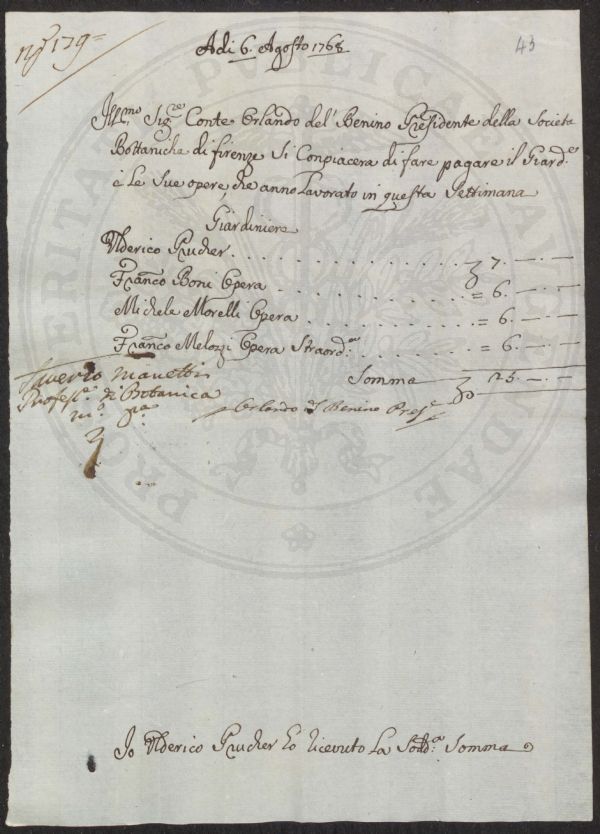 n.º 179=
43
Adi 6. Agosto 1768
Ill:mo Sig:re Conte Orlando del' Benino Presidente della Societa
Bottanicha di firenze Si Conpiacera di fare pagare il Giard:e
e Le Sue opere, che anno Lavorato in questa Settimana
Giardiniere
Ulderico Prucher . . . . . . . . 7. — . —
Fran:co Boni Opera . . . . . . . = 6. — . —
Michele Morelli Opera . . . . . . = 6. — . —
Fran:co Melozzi Opera Straord:a . . . = 6. — . —
Somma 25. — . —
Saverio Manetti
Profess:e di Botanica
m:o pa
Orlando del Benino Pres:e
Io Ulderico Prucher ho ricevuto La Sudd:a Somma
PRO VERITATE PUBLICA FIDE